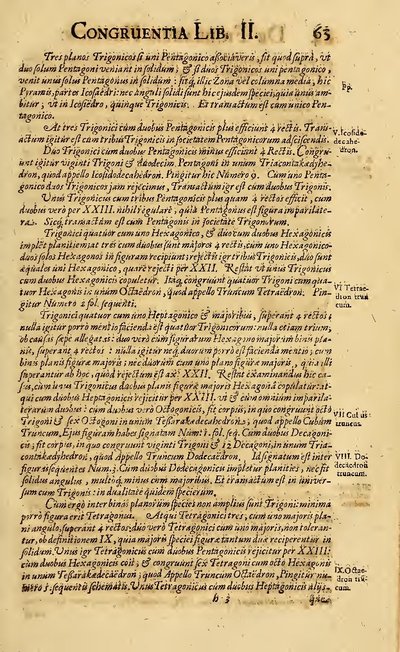 CONGRUENTIA LIB. II. 63
Tres planos Trigonicos si uni Pentagonico associaveris, fit quod suprà, ut
duo solum Pentagoni veniant in solidum; & si duos Trigonicos uni pentagonico,
venit unus solus Pentagonus in solidum: fit q, illic Zona vel columna media, hic
Pyramis, partes Icosaëdri: nec anguli solidi sunt hic ejusdem speciei, quia unus am-
bitur, ut in Icosiëdro, quinque Trigonicis. Et transactum est cum unico Pen-
tagonico.
At tres Trigonici cum duobus Pentagonicis plus efficiunt 4 rectis. Trans-
actum igitur est cum tribus Trigonicis in societatem Pentagonicorum adsciscendis.
V. Icosido-
decahe-
dron.
Duo Trigonici cum duobus Pentagonicis minus efficiunt 4 Rectis. Congru-
unt igitur viginti Trigoni & duodecim Pentagoni in unum Triacontakaedyhe-
dron, quod appello Icosidodecahedron. Pingitur hic Numero 9. Cum uno Penta-
gonico duos Trigonicos jam rejecimus, Transactum igr est cum duobus Trigonis.
Unus Trigonicus cum tribus Pentagonicis plus quam 4 rectos efficit, cum
duobus verò per XXIII. nihil regulare, quia Pentagonus est figura imparilate-
ra. Sicq, transactum est cum Pentagonis in societate Trigonorum.
Trigonici quatuor cum uno Hexagonico, & duo cum duobus Hexagonicis
implēt planitiem: at tres cum duobus sunt majores 4 rectis, cum uno Hexagonico-
duos solos Hexagonos in figuram recipiunt; rejectis igr tribus Trigonicis, duo sunt
æquales uni Hexagonico, quare rejecti per XXII. Restat ut unus Trigonicus
duobus Hexagonicis copuletur. Itaq, congruunt quatuor Trigoni cum qua-
tuor Hexagonis in unum Octaëdron, quod appello Truncum Tetraëdron. Pin-
gitur Numero 2 fol. sequenti.
VI Tetrae-
dron trun
cum.
Trigonici quatuor cum uno Heptagonico & majoribus, superant 4 rectos;
nulla igitur porrò mentio facienda est quatuor Trigonicorum: nulla etiam trium,
ob causas sæpe allegatas: duo verò cum figurarum Hexagono majorum binis pla-
nis, superant 4 rectos: nulla igitur neq, duorum porrò est facienda mentio, cum
binis planis figuræ majoris: nec duorum cum uno plano figuræ majoris, quia illi
superantur ab hoc, quod rejectum est ax: XXII. Restat examinandus hic ca-
sus, cum unus Trigonicus duobus planis figuræ majoris Hexagonâ copulatur: at-
qui cum duobus Heptagonicis rejicitur per XXIII. ut & omnium imparila-
terarum duobus: cum duobus verò Octogonicis, fit corpus, in quo congruunt octo
Trigoni & sex Octogoni in unum Tessarakaedecaëdron, quod appello Cubum
Truncum, Ejus figuram habes notatam Num: 1. fol. seq. Cum duobus Decagoni-
cis, fit corpus, in quo congruunt viginti Trigoni & 12 Decagoni, in unum Tria-
contakaedyhedron, quod appello Truncum Dodecaëdron. Id signatum est inter
figuras sequentes Num. 3. Cum duobus Dodecagonicis impletur planities, nec fit
solidus angulus, multoq, minus cum majoribus. Et transactum est in univer-
sum cum Trigonis: in dualitate quidem specierum.
VII Cubus
truncus.
VIII. Do-
decaëdron
truncum.
Cùm ergò inter binas planorum species non amplius sunt Trigoni: minima
porrò figura erit Tetragonus. Atqui Tetragonici tres, cum uno majoris pla-
ni angulo, superant 4 rectos: duo verò Tetragonici cum uno majoris, non toleran-
tur, ob definitionem IX, quia majoris speciei figuræ tantum duæ reciperentur in
solidum. Unus igr Tetragonicus cum duobus Pentagonicis rejicitur per XXIII:
cum duobus Hexagonicis coit; & congruunt sex Tetragoni cum octo Hexagonis
in unum Tessarakædecaëdron; quod appello Truncum Octaëdron, Pingitur nu-
mero 5. sequenti schemati. Unus Tetragonicus cum duobus Heptagonicis aliis-
IX. Octae-
dron trū-
cum.
h 3 que